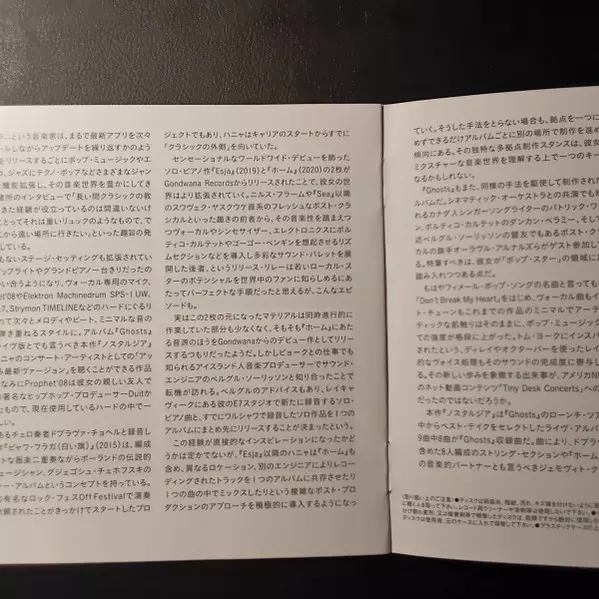 ニという音楽家は、まるで最新アプリを次々
ールしながらアップデートを繰り返すかのよう
をリリースするごとにポップ・ミュージックやエ
カ、ジャズにテクノ・ポップなどさまざまなジャン
機能拡張し、その音楽世界を豊かにしてき
場所のインタビューで「長い間クラシックの教
きた経験が役立っているのは間違いないけ
とっては重いリュックのようなもので、で
から遠い場所に行きたい」といった趣旨の発
している。
もないステージ・セッティングも拡張されてい
ップライトやグランドピアノ一台きりだったの
い合うようになり、ヴォーカル専用のマイク、
'08やElektron Machinedrum SPS-1 UW、
7、Strymon TIMELINEなどのハードにぐるり
れて次々とメロディやビート、ミニマルな音の
弾き重ねるスタイルに。アルバム『Ghosts』
ライヴ版とでも言うべき本作『ノスタルジア』
ニャのコンサート・アーティストとしての「アッ
み最新ヴァージョン」を聴くことができる作品
なみにProphet'08は彼女の親しい友人で
の著名なヒップホップ・プロデューサーDuitか
たもので、現在使用しているハードの中で一
しい。
あるチェロ奏者ドブラヴァ・チョヘルと録音し
『ビャワ・フラガ(白い旗)』(2015)は、編成
トな器楽二重奏ながらポーランドの伝説的
ュージシャン、グジェゴシュ・チェホフスキの
ァー・アルバムというコンセプトを持っている。
の有名なロック・フェスOff Festivalで演奏
依頼されたことがきっかけでスタートしたプロ
ジェクトでもあり、ハニャはキャリアのスタートからすでに
「クラシックの外側」を向いていた。
センセーショナルなワールドワイド・デビューを飾った
ソロ・ピアノ作『Esja』(2019)と『ホーム』(2020)の2枚が
Gondwana Recordsからリリースされたことで、彼女の世
界はより拡張されていく。ニルス・フラームや『Sea』以降
のスワヴェク・ヤスクウケ直系のフレッシュなポスト・クラ
シカルといった趣きの前者から、その音楽性を踏まえつ
つヴォーカルやシンセサイザー、エレクトロニクスにポル
ティコ・カルテットやゴーゴー・ペンギンを想起させるリズ
ムセクションなどを導入し多彩なサウンド・パレットを展
開した後者、というリリース・リレーは若いローカル・ス
ターのポテンシャルを世界中のファンに知らしめるにあ
たってパーフェクトな手順だったと思えるが、こんなエピ
ソードも。
実はこの2枚の元になったマテリアルは同時進行的に
作業していた部分も少なくなく、そもそも『ホーム』にあた
る音源のほうをGondwanaからのデビュー作としてリリー
スするつもりだったようだ。しかしビョークとの仕事でも
知られるアイスランド人音楽プロデューサーでサウンド・
エンジニアのベルグル・ソーリッソンと知り合ったことで
転機が訪れる。ベルグルのアドバイスもあり、レイキャ
ヴィークにある彼のE7スタジオで新たに録音するソロ・
ピアノ曲と、すでにワルシャワで録音したソロ作品を1つの
アルバムにまとめ先にリリースすることが決まったという。
この経験が直接的なインスピレーションになったかど
うかは定かでないが、『Esja』以降のハニャは『ホーム』も
含め、異なるロケーション、別のエンジニアによりレコー
ディングされたトラックを1つのアルバムに共存させたり
1つの曲の中でミックスしたりという複雑なポスト・プロ
ダクションのアプローチを積極的に導入するようになっ
ていく。そうした手法をとらない場合も、拠点を一つに
めずできるだけアルバムごとに別の場所で制作を進め
傾向にある。その独特な多拠点制作スタンスは、彼女
ミクスチャーな音楽世界を理解する上で一つのキー
なるかもしれない。
『Ghosts』もまた、同様の手法を駆使して制作された
ルバムだ。シネマティック・オーケストラとの共演でも知
られるカナダ人シンガーソングライターのパトリック・ワ
ン、ポルティコ・カルテットのダンカン・ベラミー、そして
述ベルグル・ソーリッソンの盟友でもあるポスト・クラ
カルの旗手オーラヴル・アルナルズらがゲスト参加し
る。特筆すべきは、彼女が「ポップ・スター」の領域に
踏み入れつつある点だ。
もはやフィメール・ポップ・ソングの名曲と言っても
「Don't Break My Heart」をはじめ、ヴォーカル曲もイ
ト・チューンもこれまでの作品のミニマルでアーテ
ティックな肌触りはそのままに、ポップ・ミュージック
ての強度が格段に上がった。トム・ヨークにインスパ
されたという、ディレイやオクターバーを使ったレイ
的なヴォイス処理もそのサウンドの完成度に寄与し
る。その新しい歩みを象徴する出来事が、アメリカNP
のネット動画コンテンツ「Tiny Desk Concerts」への
だったのではないだろうか。
本作『ノスタルジア』は『Ghosts』のローンチ・ツア
中からベスト・テイクをセレクトしたライヴ・アルバ
9曲中8曲が『Ghosts』収録曲だ。曲により、ドブラ
含めた8人編成のストリング・セクションや『ホーム』
の音楽的パートナーとも言うべきジェモヴィト・ク